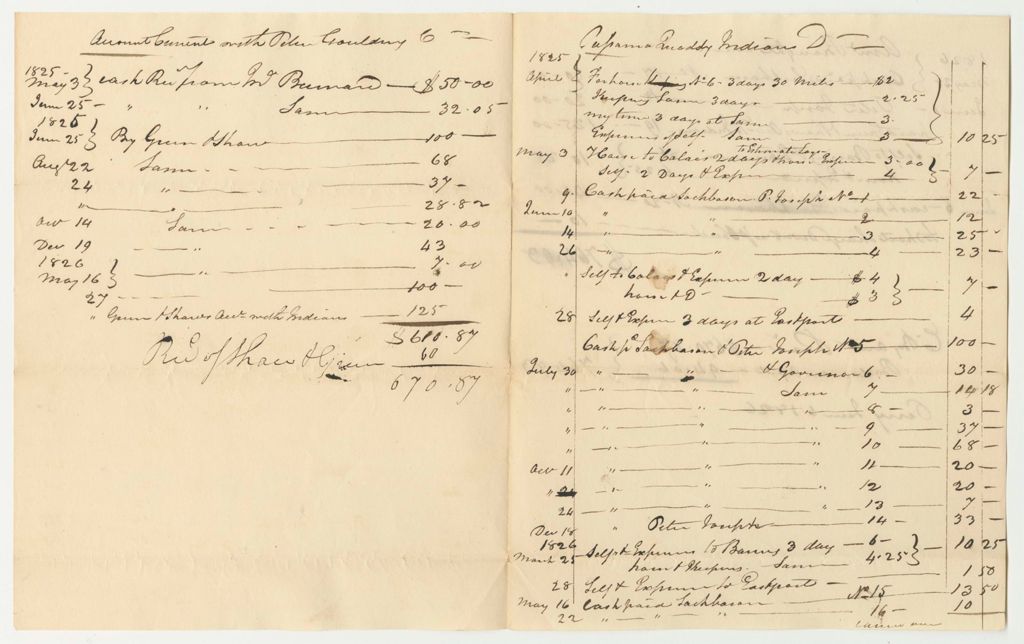 Account Current with Peter Goulding Cr
1825
May 3 Cash Recd from Mr Barnard — $50-00
June 25 - " " Same 32.05
1825
June 25 By Green & Shaw 100 —
Augt 22 Same - - 68
24 " 37 -
" " 28.82
Oct 14 Same - - - 20.00
Dec 19 " 43
1826 " 7-00
May 16 100 -
27 - 125
" Green & Shaws Acct with Indians
$610.87
Recd of Shaw & Green 60
670.87
Passamaquoddy Indian Dr
1825
April For horse No 6 - 3 days 30 Miles $2
Keeping Same 3 days 2.25
my time 3 days at Same 3.
Expense of Self Same 3 10 25
May 3 Horse to Calais 2 days 3-00
Self 2 Days & Expen 4 7 —
9 Cash paid Sockbason P. Joseph No 1 22 —
June 10 " " 2 12
14 " " 3 25 -
26 " " 4 23 —
" Self to Calais & Expense 2 day $4
horse & Do $3 7 —
28 Self & Expen 3 days at Eastport 4
Cash pd Sockbason & Peter Joseph No 5 100 —
July 30 " " & Governor 6 - 30 -
" " Same 7 14 18
" " " 8 - 3 -
" " " 9 37 —
" " " 10 68 -
Oct 11 " " " 11 20 -
" " " 12 20 -
24 " " 13 7 -
Dec 18 " Peter Joseph 14 - 33 -
1826
Self & Expenses to 3 day - 6 - 10 25
March 25 horse & Keeping Same 4.25
1 50
28 Self & Expense to Eastport No 15 13 50
May 16 Cash paid Sockbason
22 " " " 16 - 10